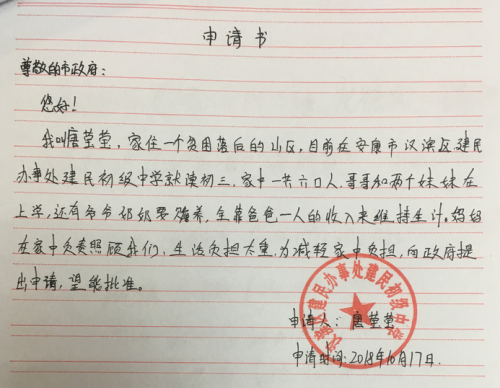 申请书
尊敬的市政府：
您好！
我叫唐莹莹，家住一个贫困落后的山区，目前在安康市汉滨区建民
办事处建民初级中学就读初三，家中一共六口人，哥哥和两个妹妹在
上学，还有爷爷奶奶要赡养，全靠爸爸一人的收入来维持生计。妈妈
在家中负责照顾我们，生活负担太重，为减轻家中负担，向政府提
出申请，望能批准。
申请人：唐莹莹
申请时间：2018年10月17日.
建民办事处建民初级中学